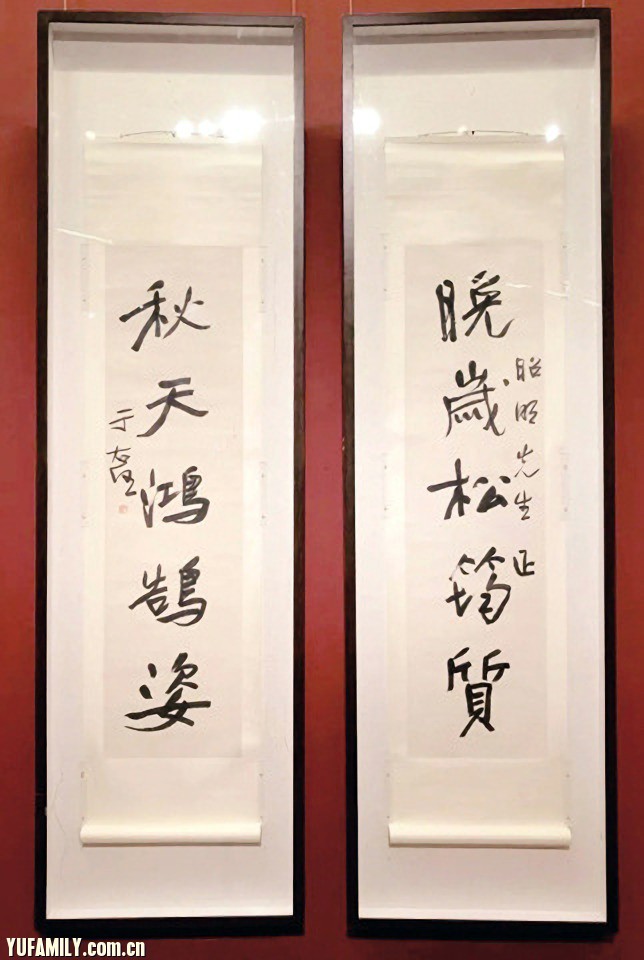 晚歲松筠質
昭明先生正
秋天鴻鵠姿
于右任
YUFAMILY.com.cn